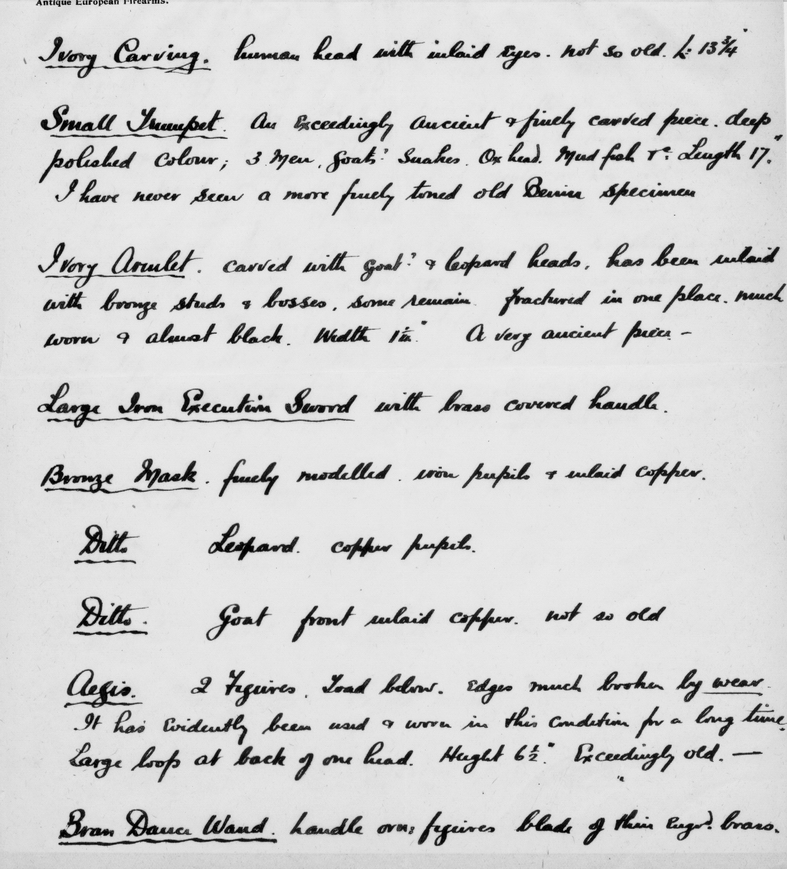 Antique European Firearms.
Ivory Carving. human head with inlaid Eyes. not so old. L: 13 3/4"
Small Trumpet. An Exceedingly Ancient & finely carved piece. deep
polished colour; 3 Men, Goats? Snakes. Ox head. Mud fish &c. Length 17."
I have never seen a more finely toned old Benin specimen
Ivory Armlet. carved with Goat? & leopard heads, has been inlaid
with bronze studs & bosses, some remain. fractured in one place. much
worn & almost black. Width A very ancient piece –
Large Iron Execution Sword with brass covered handle.
Bronze Mask. finely modelled. iron pupils & inlaid copper.
Ditto Leopard. copper pupils.
Ditto. Goat front inlaid copper. not so old
Aegis. 2 Figures. Toad below. Edges much broken by wear.
It has Evidently been used & worn in this condition for a long time.
Large loop at back of one head. Height 6 1/2." Exceedingly old. —
Dance Wand. handle orn: figures blade of thin Engrd. brass.